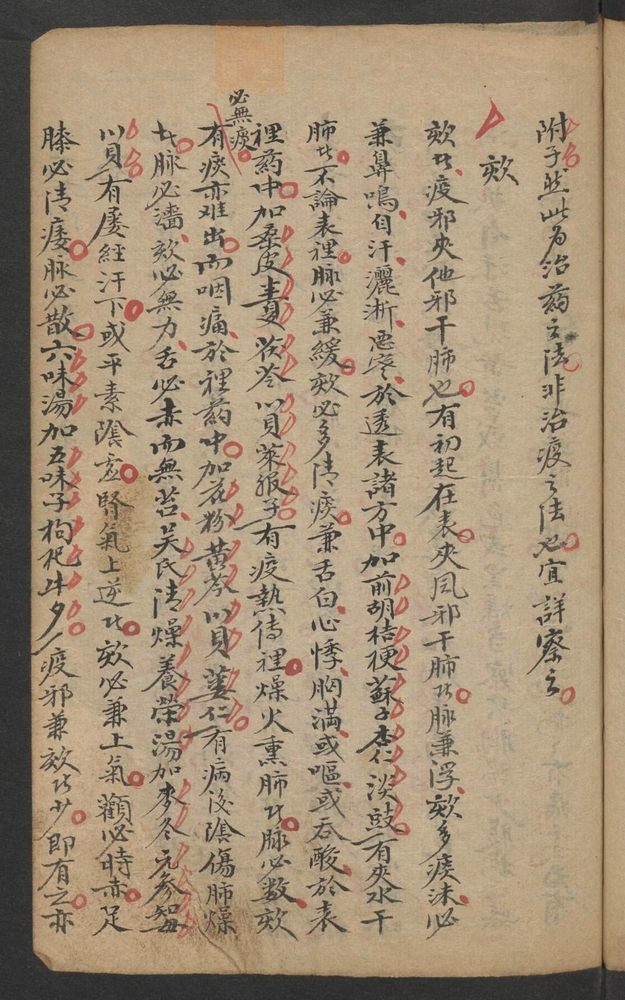 附子並此為治藥之法非治疫之法也宜詳察之
欬
欬者疫邪夾他邪干肺也有初起在表夾風邪干肺者脈兼浮欬多痰沫必
兼鼻鳴自汗灑淅惡寒於透表諸方中加前胡桔梗蘇子杏仁淡豉有夾水干
肺者不論表裡脈必兼緩欬必多清痰兼舌白心悸胸滿或嘔或吞酸於表
裡藥中加桑皮半夏茯苓川貝萊服子有疫熱傳裡燥火熏肺者脈必数欬
必無痰
有痰亦难出而咽痛於裡药中加花粉黄芩川貝蔞仁有病後陰傷肺燥
者脈必濇欬必無力舌必赤而無苔吴氏清燥養榮湯加麥冬元參知母
川貝有屡經汗下或平素陰虛腎氣上逆者欬必兼上氣顴必時赤足
膝必清痿脈必散六味湯加五味子枸杞牛夕疫邪兼欬者少即有之亦